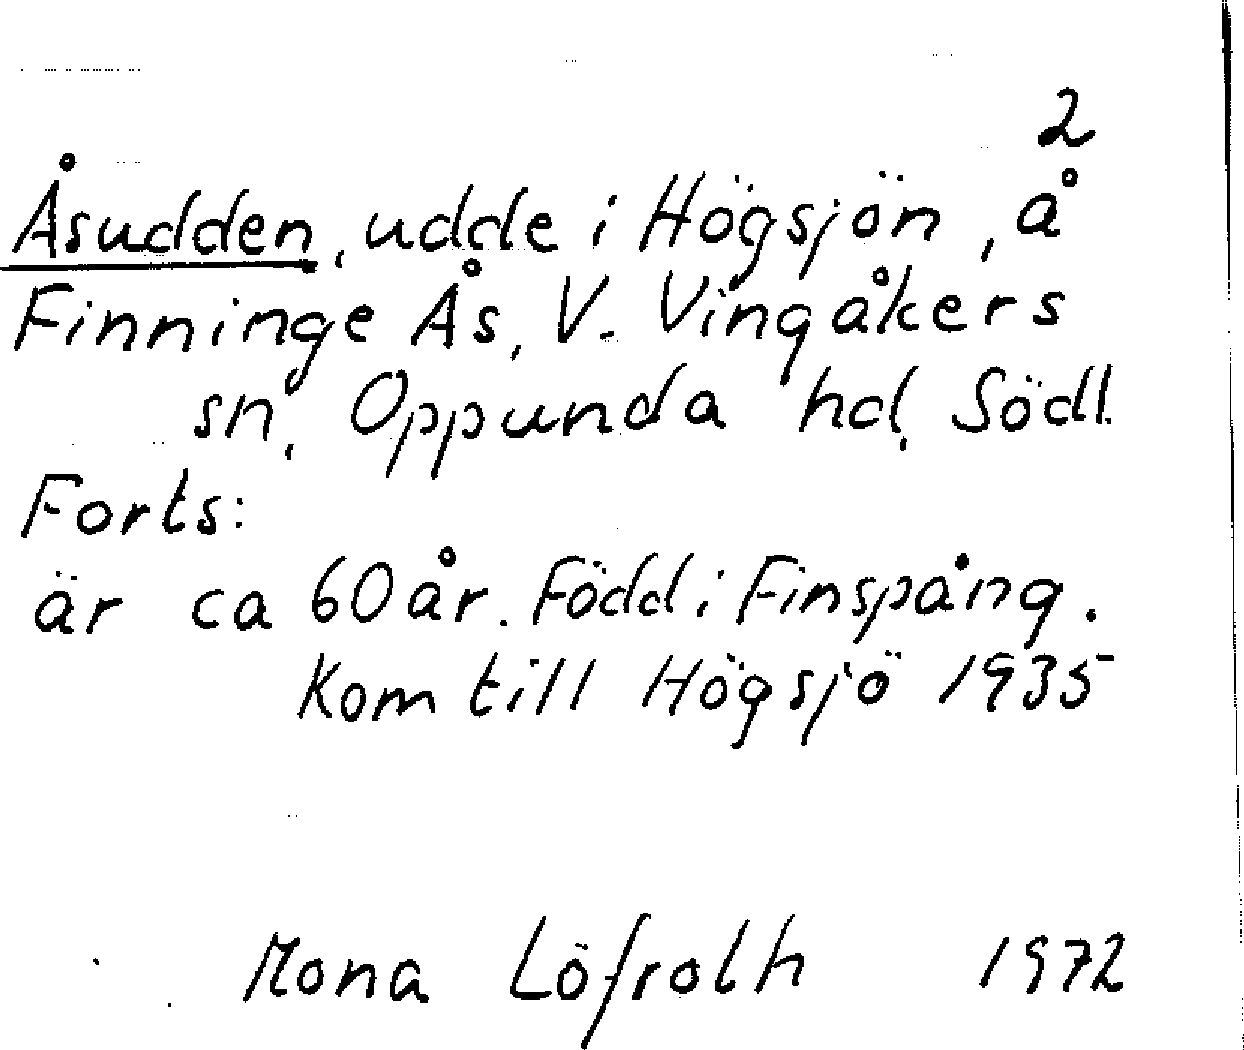 2
Åsudden, udde i Högsjön, å
Finninge Ås, V. Vingåkers
sn, Oppunda hd, Södl.
Forts:
är ca 60 år. Född i Finspång.
Kom till Högsjö 1935
Mona Löfroth 1972